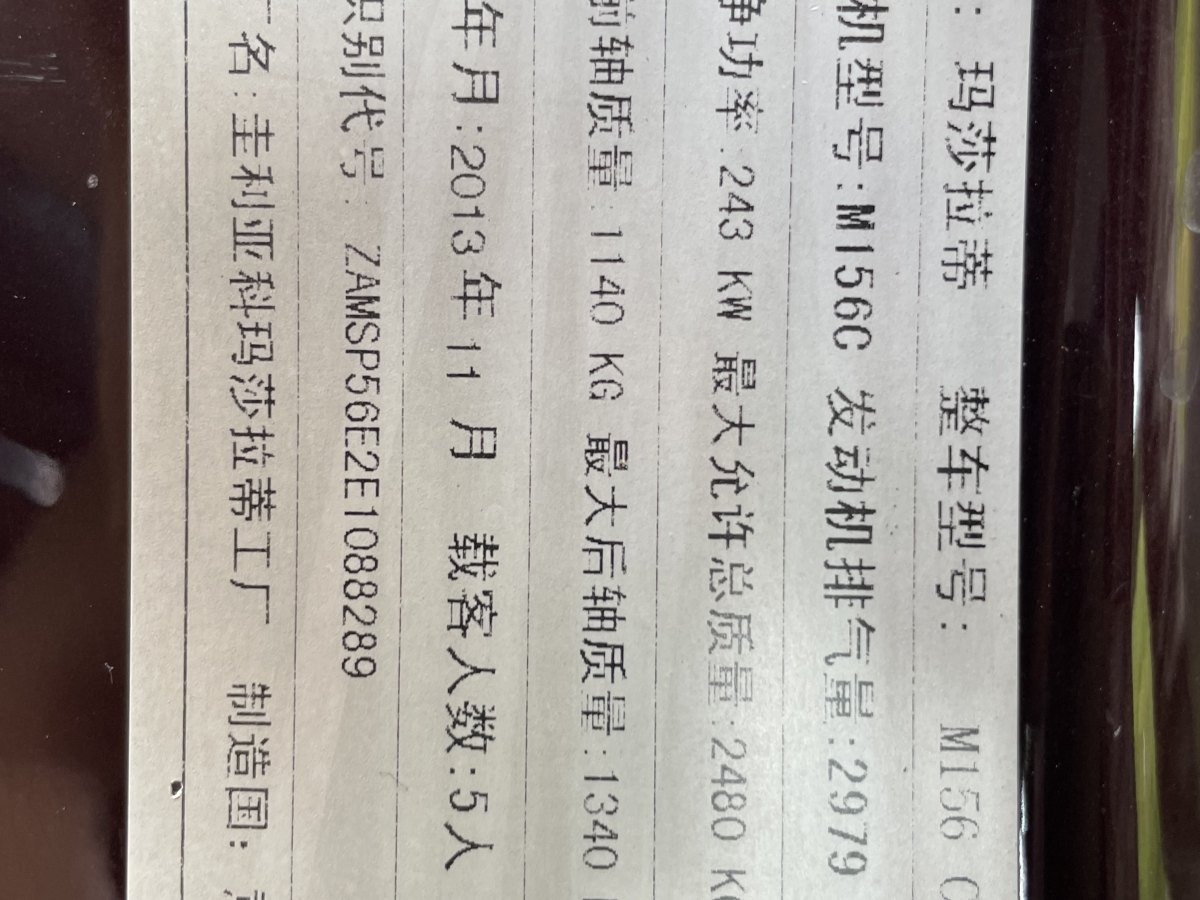 : 玛莎拉蒂 整车型号: M156 C
机型号:M156C 发动机排气量:2979
净功率:243 KW 最大允许总质量:2480 KG
前轴质量:1140 KG 最大后轴质量:1340
年月:2013年11月 载客人数:5人
识别代号: ZAMSP56E2E1088289
厂名:圭利亚科玛莎拉蒂工厂 制造国: